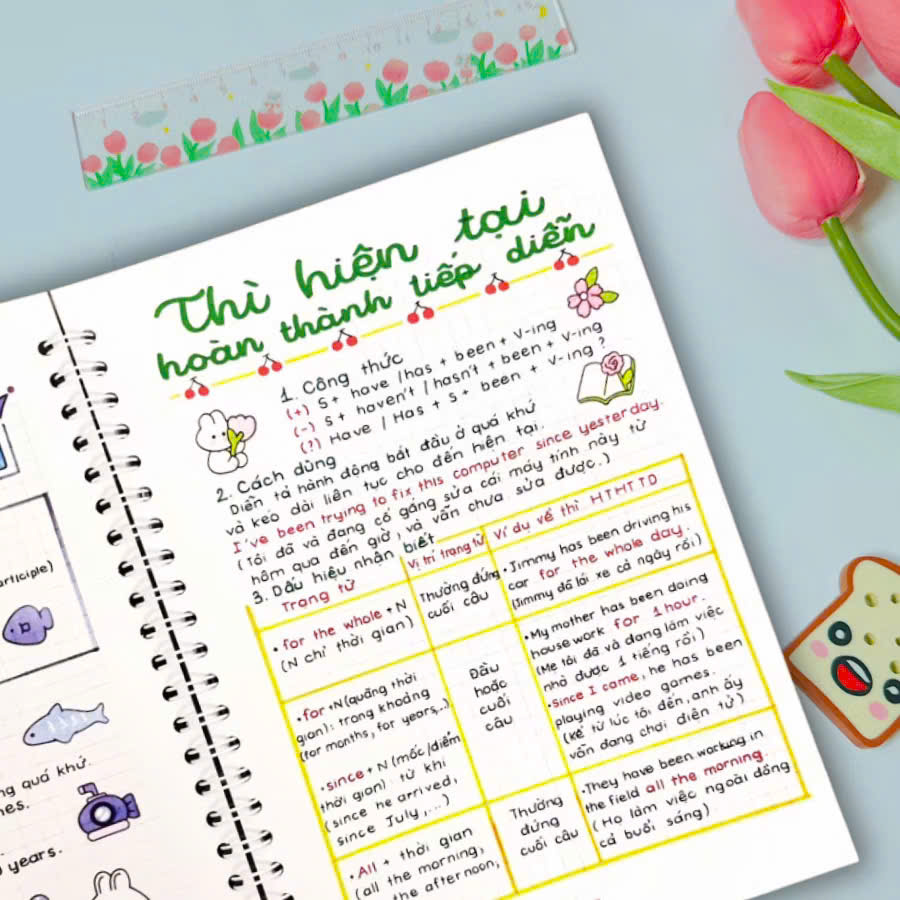 Thì hiện tại
hoàn thành tiếp diễn
1. Công thức
(+) S + have / has + been + V-ing
(-) S + haven't / hasn't + been + V-ing
(?) Have / Has + S + been + V-ing ?
2. Cách dùng
Diễn tả hành động bắt đầu ở quá khứ
và kéo dài liên tục cho đến hiện tại.
I've been trying to fix this computer since yesterday.
(Tôi đã và đang cố gắng sửa cái máy tính này từ
hôm qua đến giờ, và vẫn chưa sửa được.)
3. Dấu hiệu nhận biết
Trạng từ
Vị trí trạng từ
Ví dụ về thì HTHTTD
• for the whole + N
(N chỉ thời gian)
Thường đứng
cuối câu
• Jimmy has been driving his
car for the whole day.
(Jimmy đã lái xe cả ngày rồi)
• for + N (quãng thời
gian): trong khoảng
(for months, for years,..)
• since + N (mốc/điểm
thời gian): từ khi
(since he arrived,
since July,...)
Đầu
hoặc
cuối
câu
• My mother has been doing
housework for 1 hour.
(Mẹ tôi đã và đang làm việc
nhà được 1 tiếng rồi)
• Since I came, he has been
playing video games.
(kể từ lúc tôi đến, anh ấy
vẫn đang chơi điện tử).
• All + thời gian
(all the morning,
the afternoon,
Thường
đứng
cuối câu
• They have been working in
the field all the morning.
(Họ làm việc ngoài đồng
cả buổi sáng)
articiple)
quá khứ.
years.